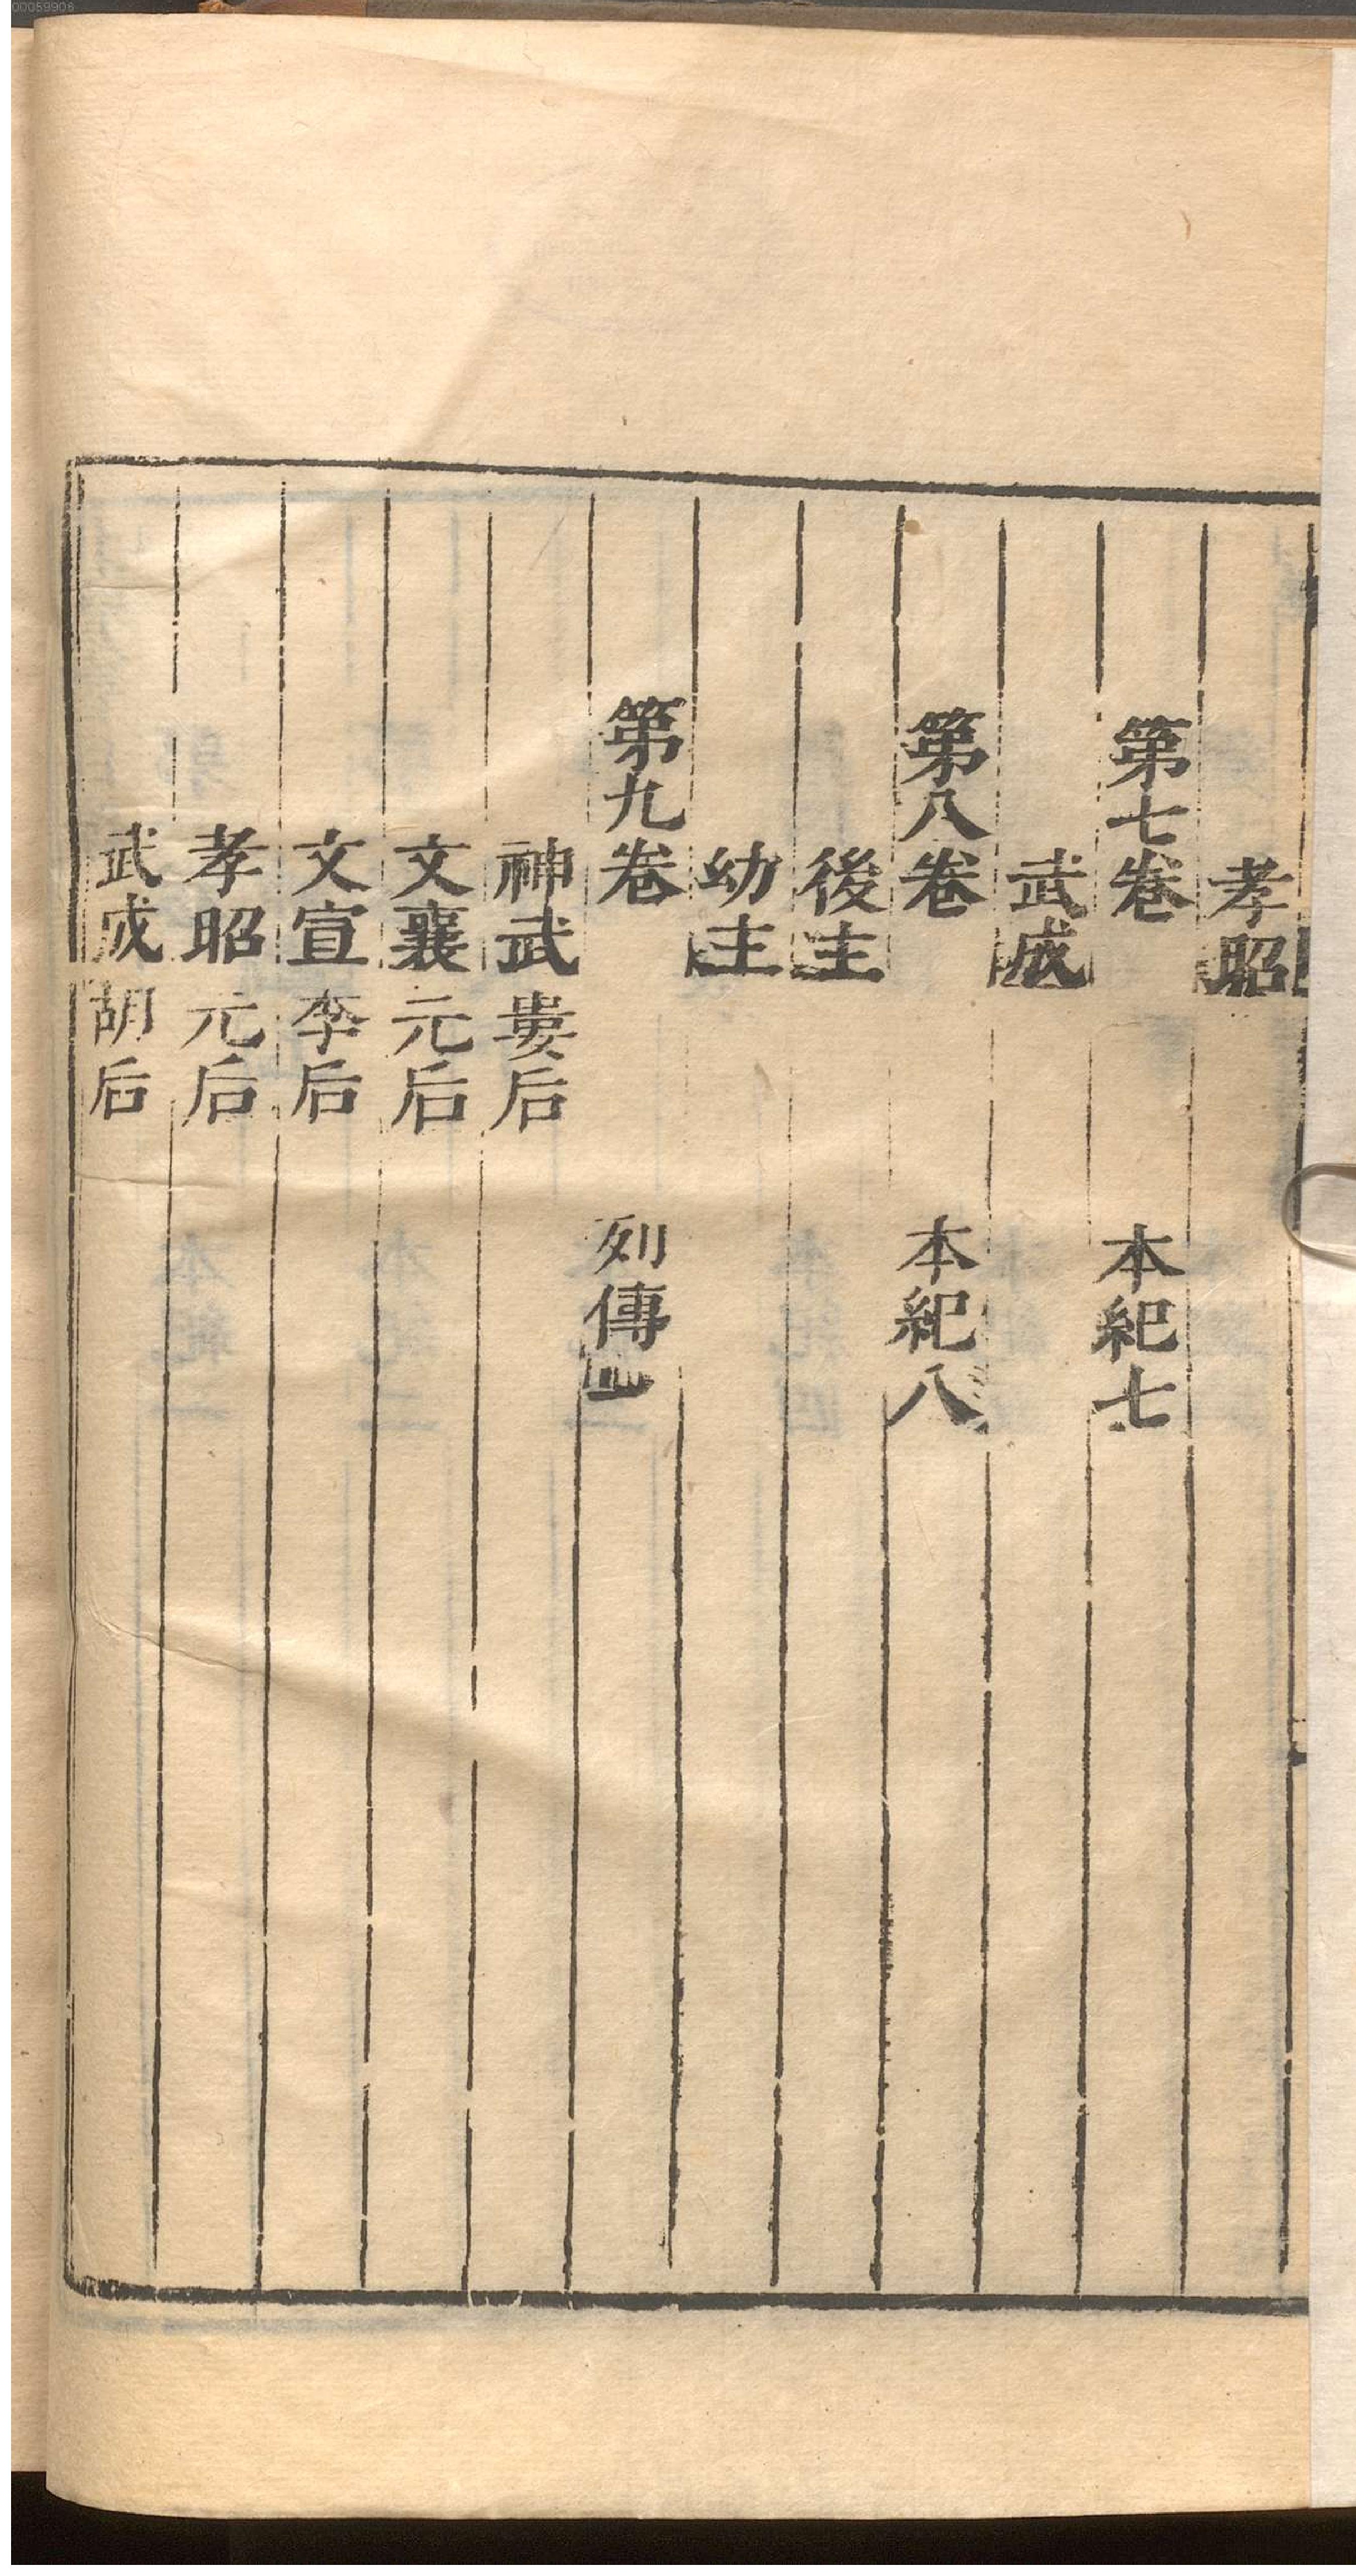 00059906
孝昭
第七卷 本紀七
武成
第八卷 本紀八
後主
幼主
第九卷 列傳
神武婁后
文襄元后
文宣李后
孝昭元后
武成胡后